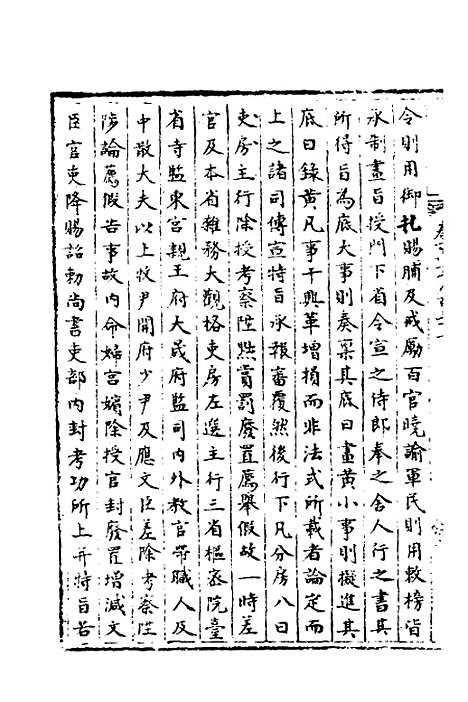 令則用御札賜脯及戒勵百官曉諭軍民則用敕榜皆
承制畫旨授門下省令宣之侍郎奉之舍人行之書其
所得旨為底大事則奏稟其底曰畫黃小事則擬進其
底曰錄黃凡事干興革增損而非法式所載者論定而
上之諸司傳宣特旨承報審覆然後行下凡分房八曰
吏房主行除授考察陞黜賞罰廢置薦舉假故一時差
官及本省雜務大觀格吏房左選主行三省樞密院臺
省寺監東宮親王府大晟府監司內外教官帶職人及
中散大夫以上牧尹開府少尹及應文臣差除考察陞
陟論薦假告事故內命婦宮嬪除授官封廢置增減文
臣官吏降賜詔勅尚書吏部內封考功所上并特旨若